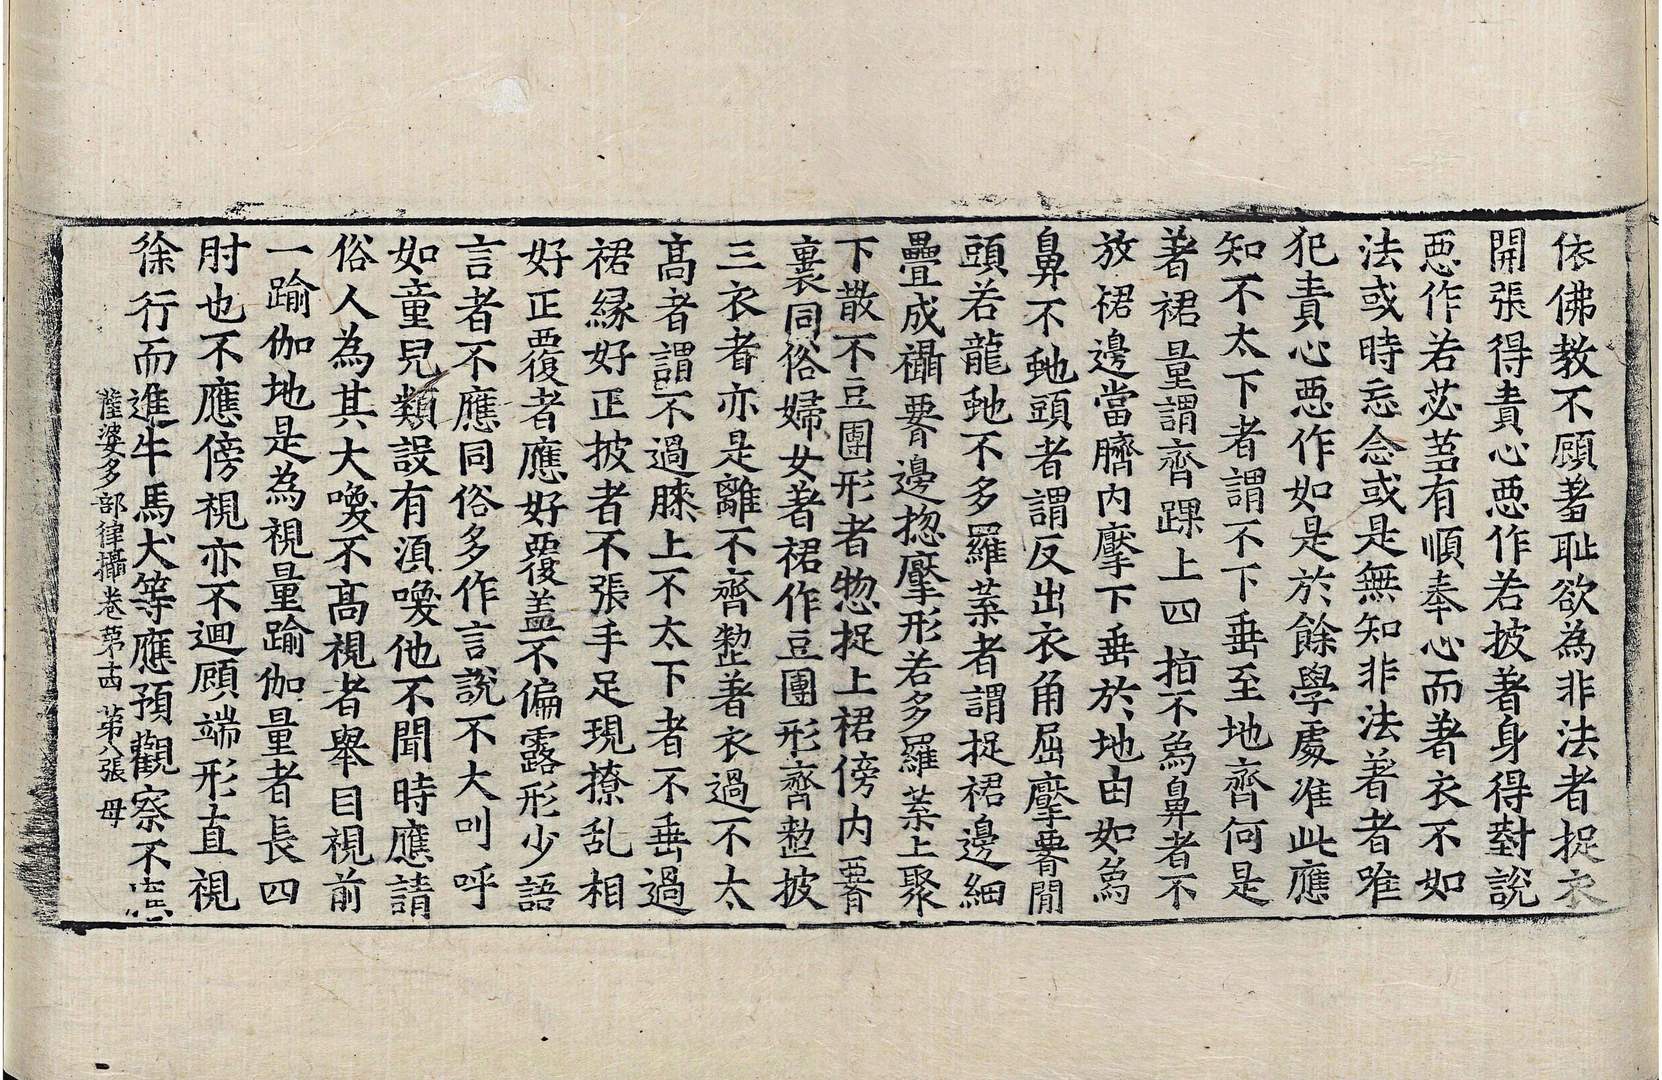 依佛教不顧羞耻欲為非法者捉衣
開張得責心惡作若披著身得對說
惡作若苾蒭有順奉心而著衣不如
法或時忘念或是無知非法著者唯
犯責心惡作如是於餘學處准此應
知不太下者謂不下垂至地齊何是
著裙量謂齊踝上四指不為鼻者不
放裙邊當臍內㩧下垂於地由如為
鼻不虵頭者謂反出衣角屈㩧䙅閒
頭若龍虵不多羅葉者謂捉裙邊細
疊成襵䙅邊揔㩧形若多羅葉上聚
下散不豆團形者惣捉上裙傍內䙅
裏同俗婦女著裙作豆團形齊整披
三衣者亦是離不齊整著衣過不太
高者謂不過膝上不太下者不垂過
裙縁好正披者不張手足現撩乱相
好正覆者應好覆盖不偏露形少語
言者不應同俗多作言說不大叫呼
如童兒類設有湏喚他不聞時應請
俗人為其大喚不高視者舉目視前
一踰伽地是為視量踰伽量者長四
肘也不應傍視亦不迴顧端形直視
徐行而進牛馬犬等應預觀察不
薩婆多部律攝卷第十四 第八張 母